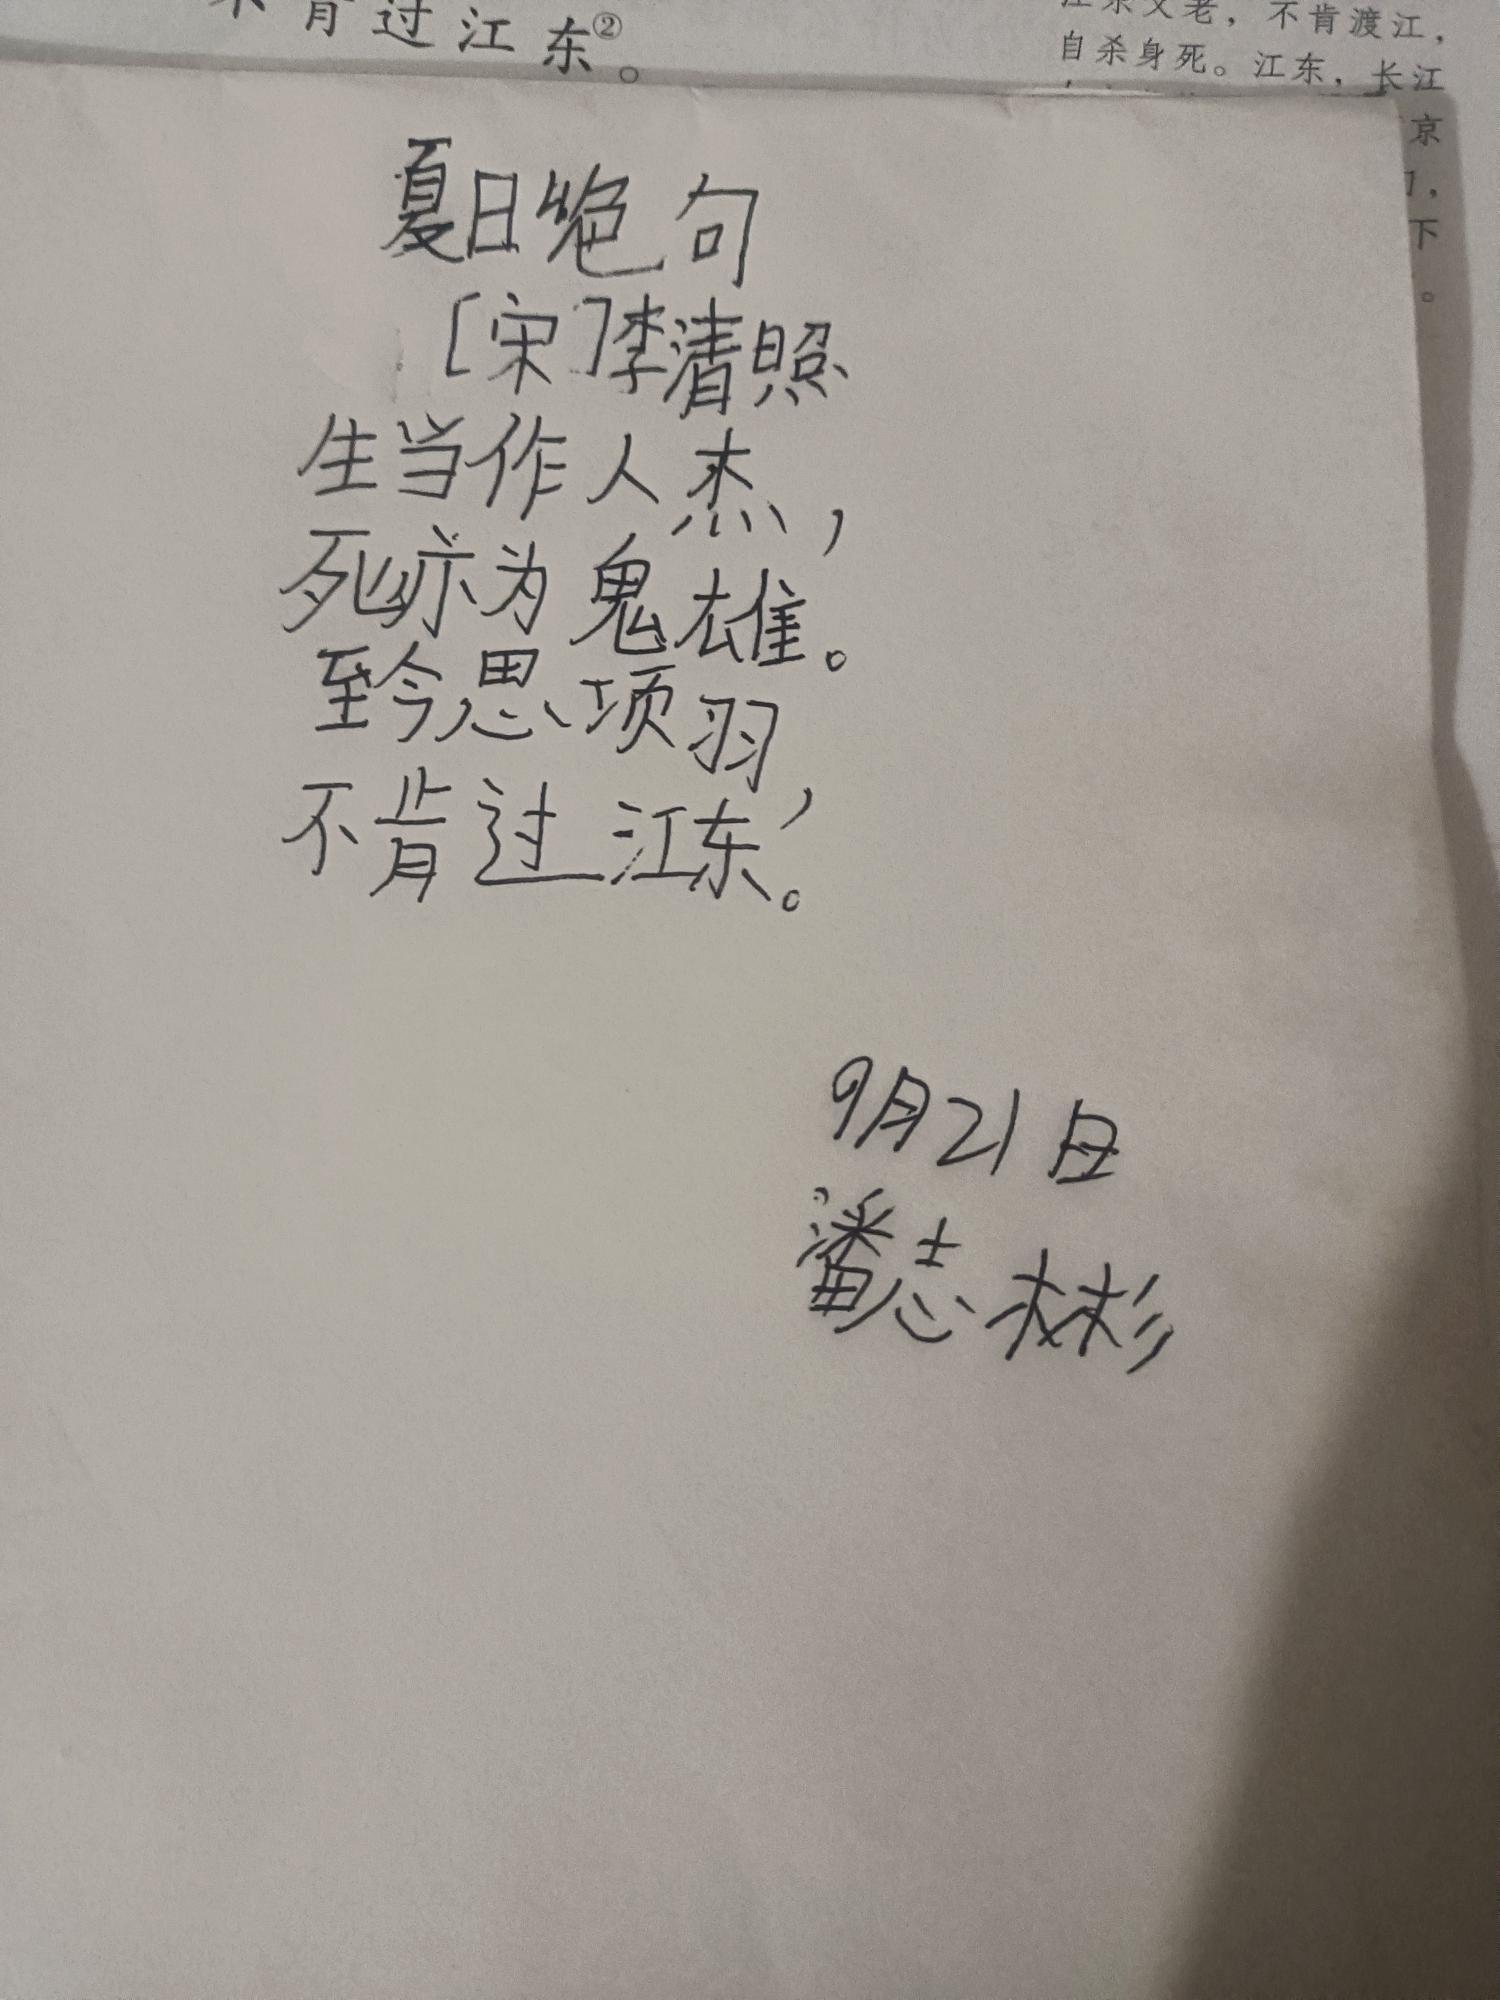 肯过江东②。
不肯渡江，
自杀身死。江东，长江
京
下
。
夏日绝句
[宋]李清照
生当作人杰，
死亦为鬼雄。
至今思项羽，
不肯过江东。
9月21日
潘志彬